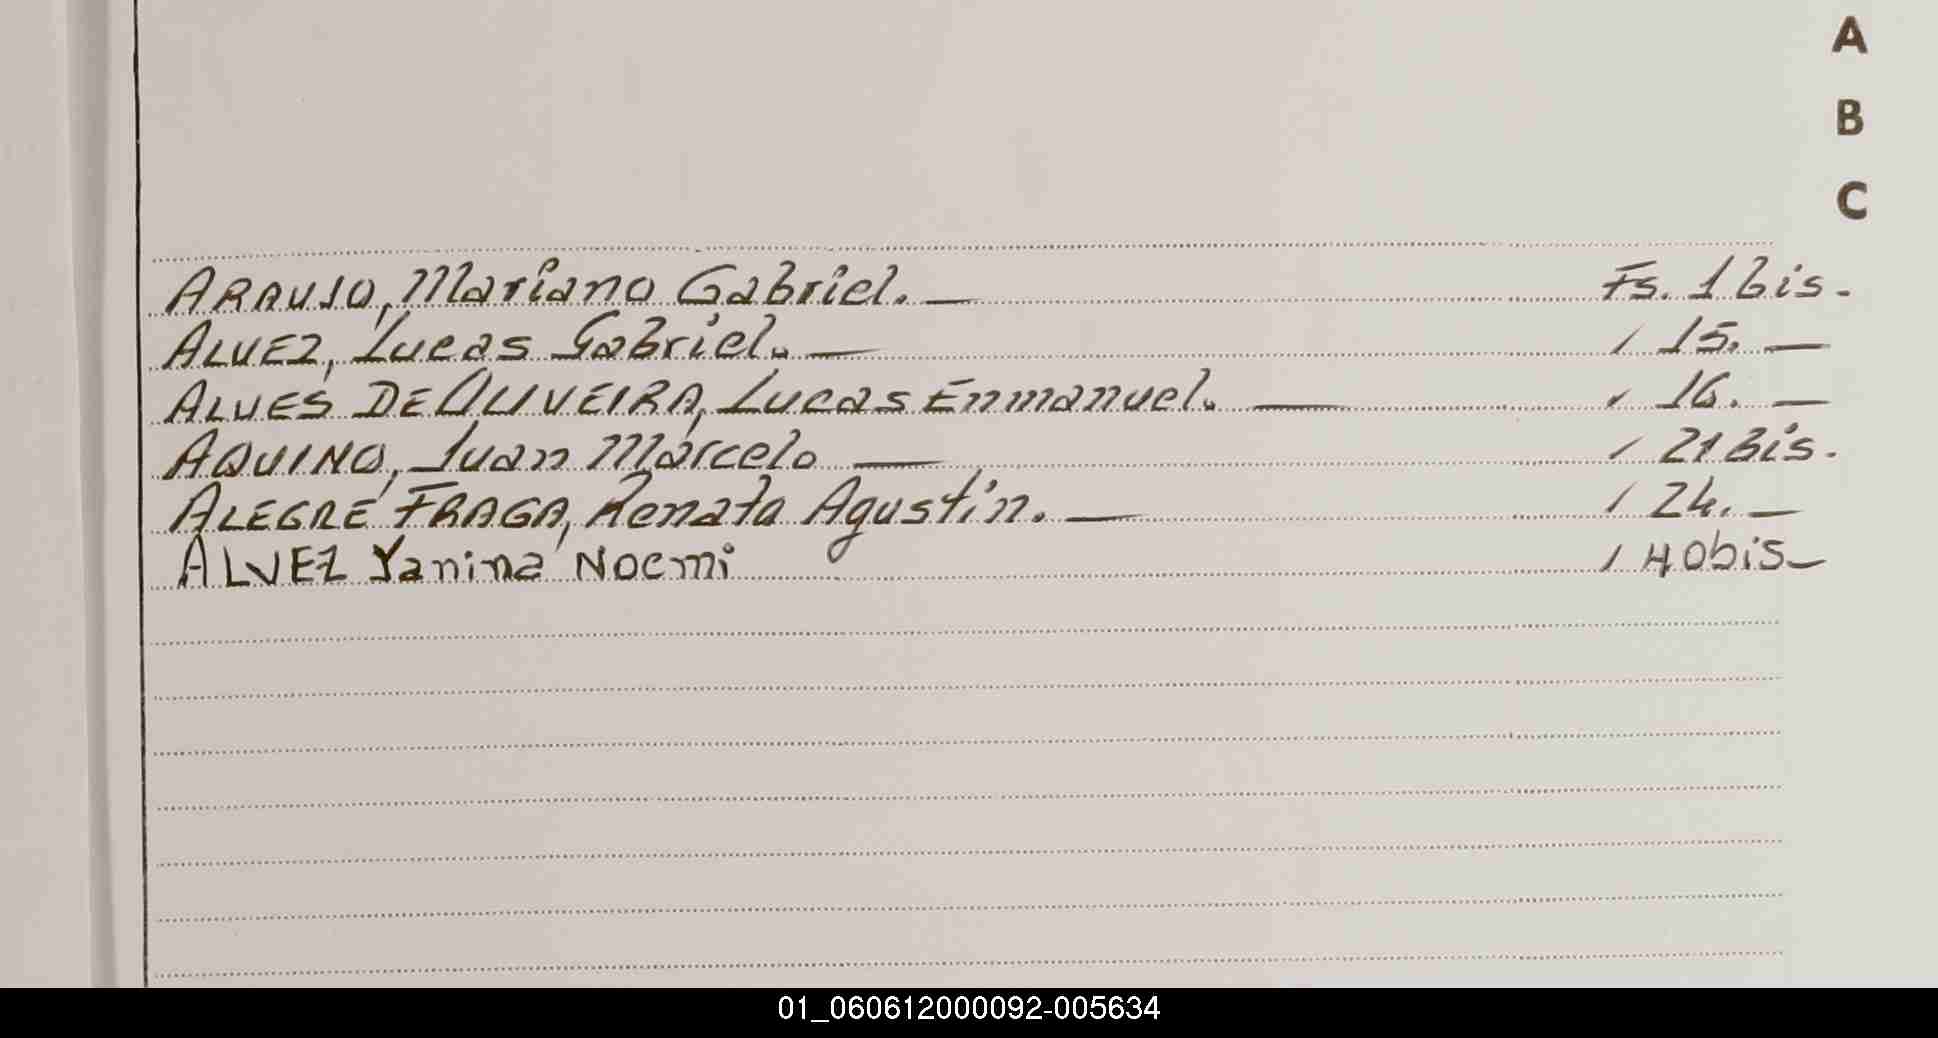 A
B
C
ARAUJO, Mariano Gabriel. — Fs. 1 bis.
ALVEZ, Lucas Gabriel. — / 15. —
ALVES DE OLIVEIRA, Lucas Enmanuel. — / 16. —
AQUINO, Juan Marcelo — / 21 Bis.
ALEGRE FRAGA, Renato Agustín. — / 24. —
ALVEZ Yanina Noemi / 40bis —
01_060612000092-005634